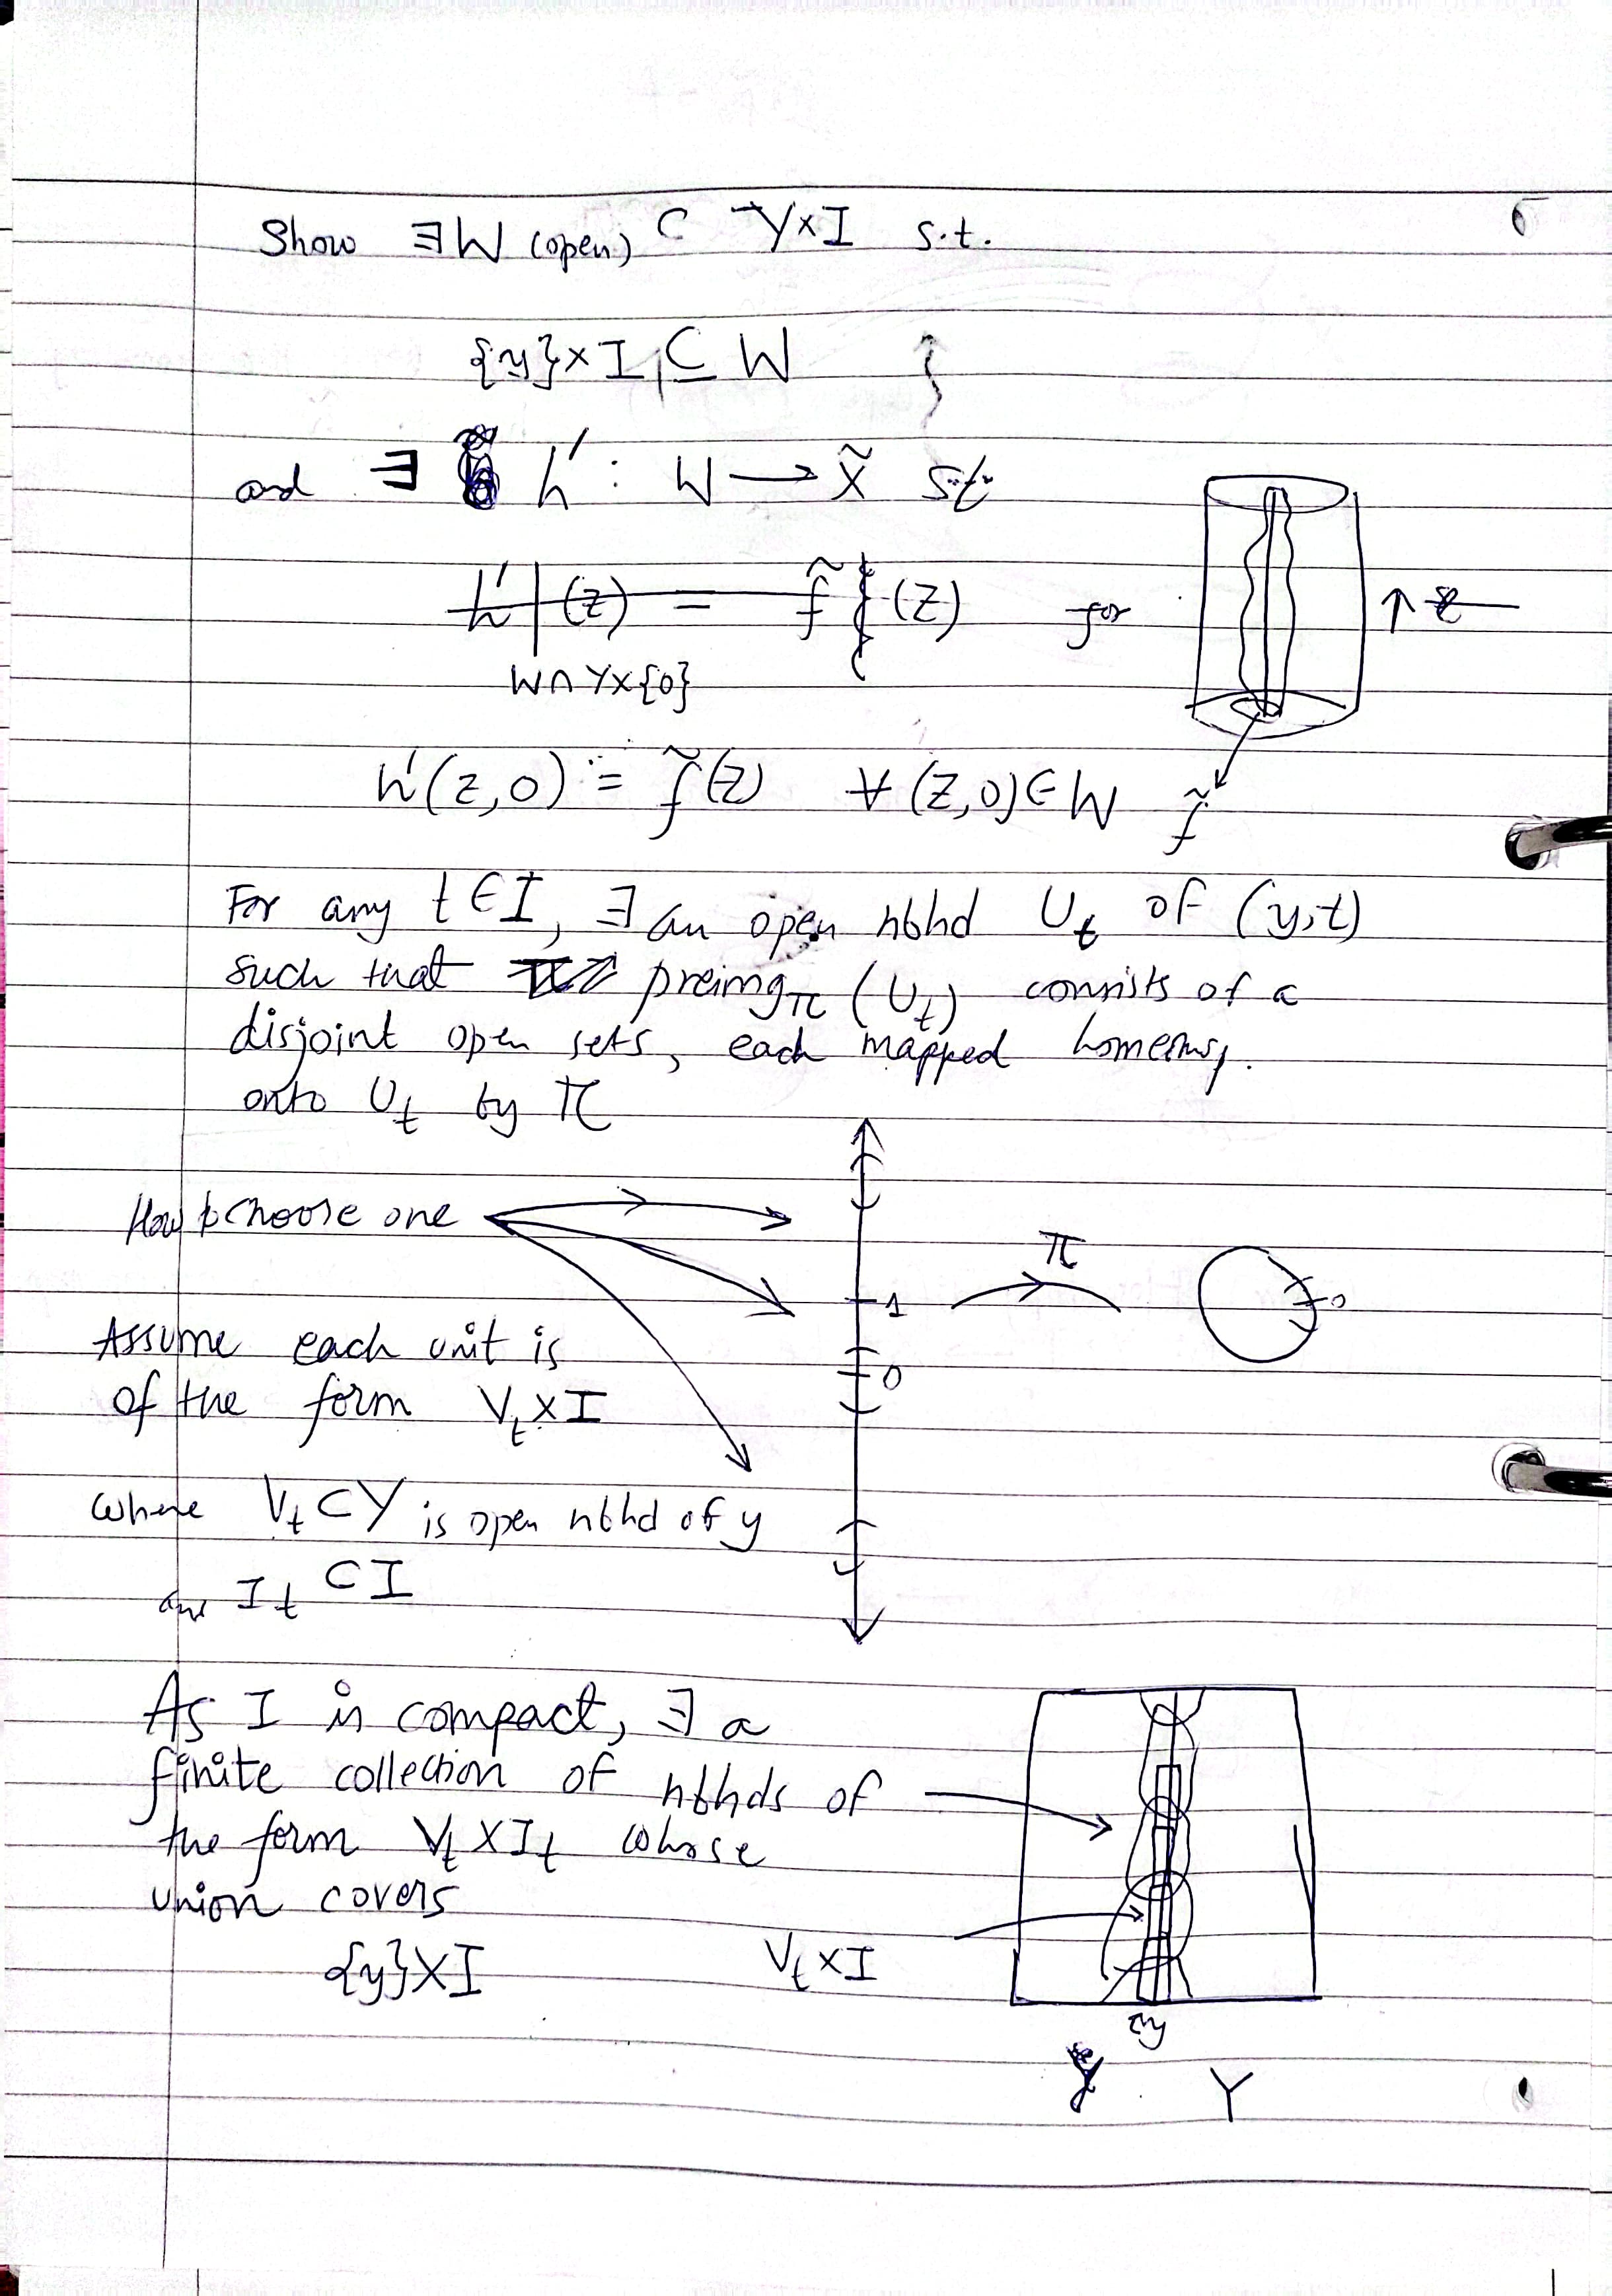 Show ∃W (open) ⊂ Y×I s.t.
{y}×I ⊆ W
and ∃ h' : W → X̃ st
h'|(z) = f̃ (z) for
W∩Y×{0}
h'(z,0) = f̃(z) ∀ (z,0)∈W f̃
For any t∈I, ∃ an open nbhd U_t of (y,t)
such that preimg_π (U_t) consists of a
disjoint open sets, each mapped homeomorp.
onto U_t by π
How to choose one
π
1
0
0
Assume each unit is
of the form V_t×I
where V_t⊂Y is open nbhd of y
and I_t ⊂ I
As I is compact, ∃ a
finite collection of nbhds of
the form V_t×I_t whose
union covers
{y}×I V_t×I
y
Y